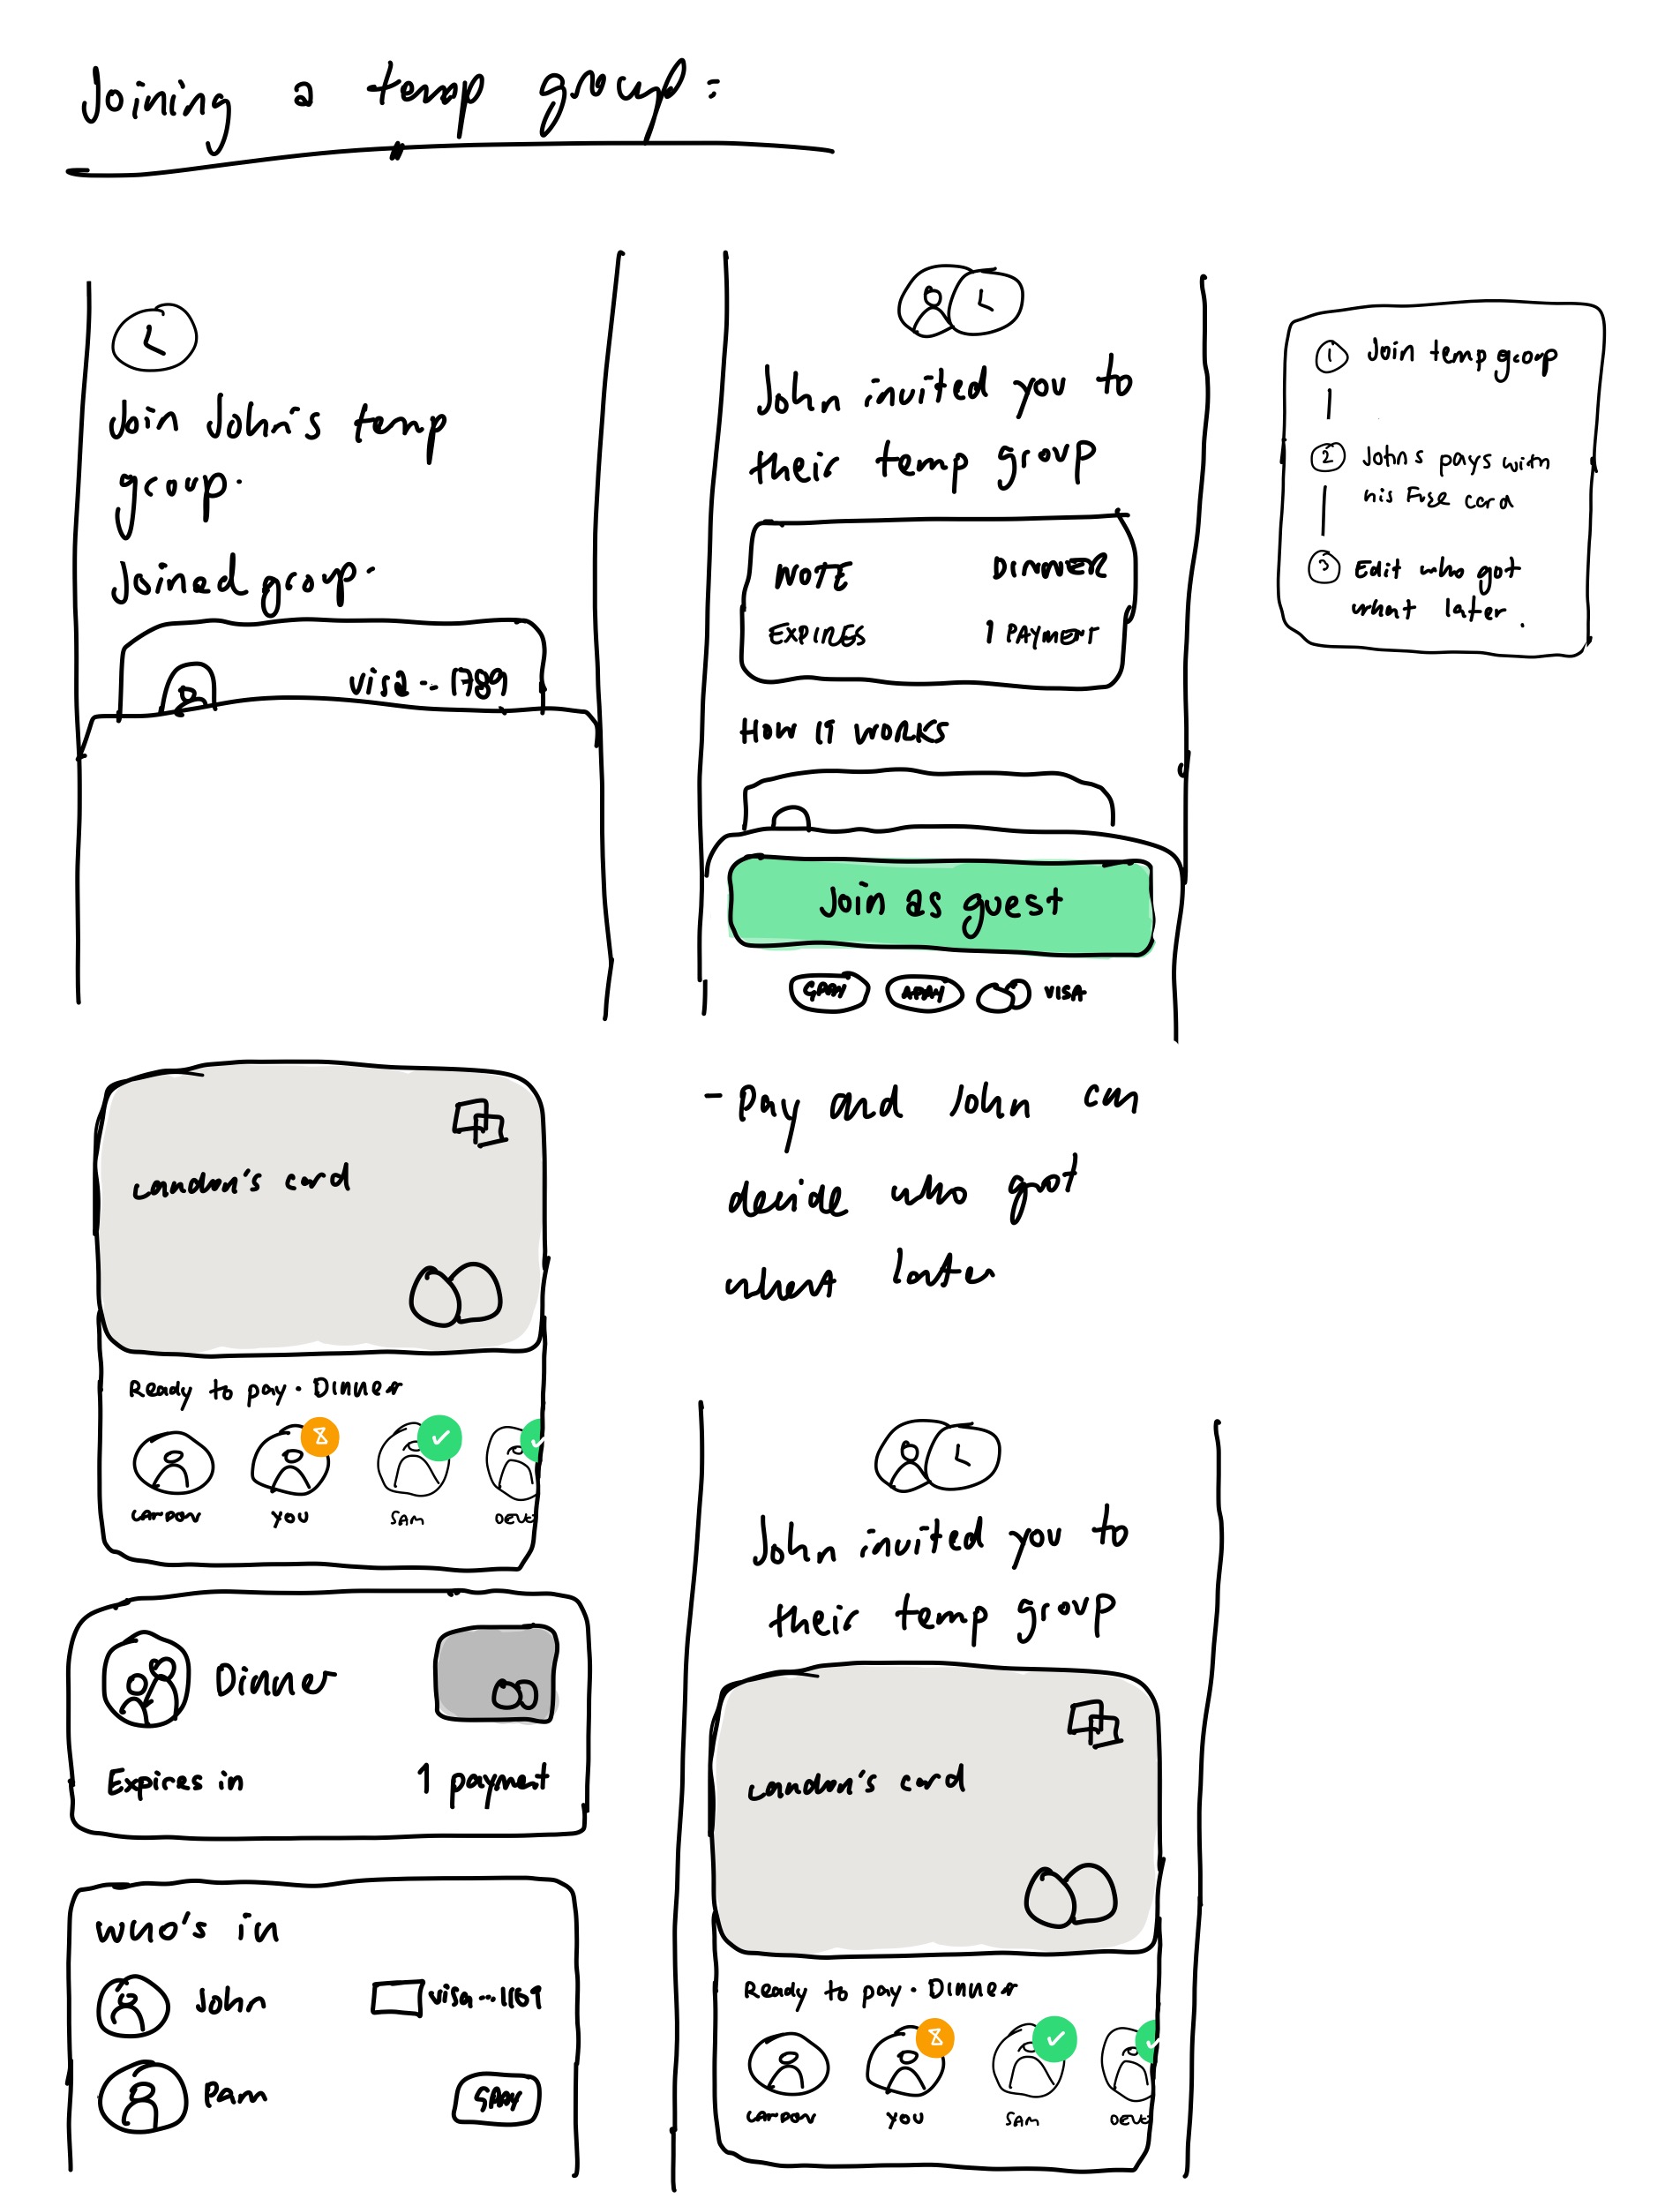 Joining a temp group:
Join John's temp
group.
Joined group.
visa -.. 1789
John invited you to
their temp group
NOTE DINNER
EXPIRES 1 PAYMENT
HOW IT WORKS
Join as guest
GPAY APAY VISA
1 Join temp group
2 Johns pays with
his Fuse card
3 Edit who got
what later.
Landon's card
Ready to pay · Dinner
LANDON YOU SAM DEV
- Pay and John can
decide who got
what later
Dinner
Expires in 1 payment
who's in
John visa --- 1169
Pam GPAY
John invited you to
their temp group
Landon's card
Ready to pay · Dinner
LANDON YOU SAM DEV